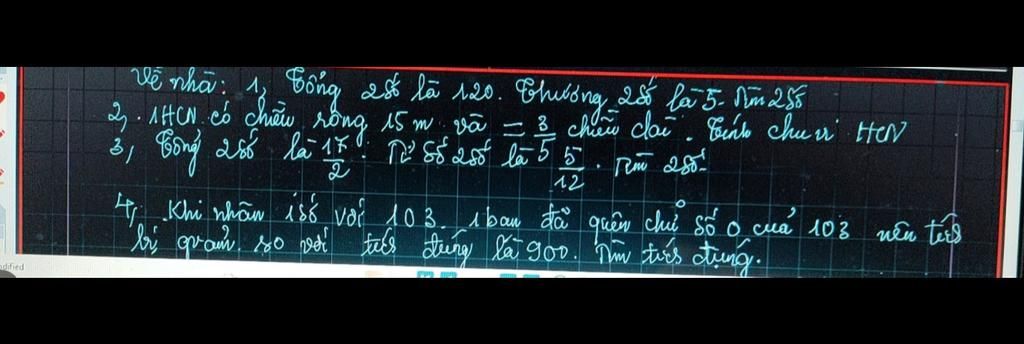 Về nhà: 1, Tổng 2 số là 120. Thương 2 số là 5. Tìm 2 số
2, . 1HCN có chiều rộng 15 m và = 3/5 chiều dài. Tính chu vi HCN
3, Tổng 2 số là 17/2. Tỉ số 2 số là 5/12. Tìm 2 số.
4, Khi nhân 1 số với 103. 1 bạn đã quên chữ số 0 của 103 nên tích
bị giảm so với tích đúng là 900. Tìm tích đúng.